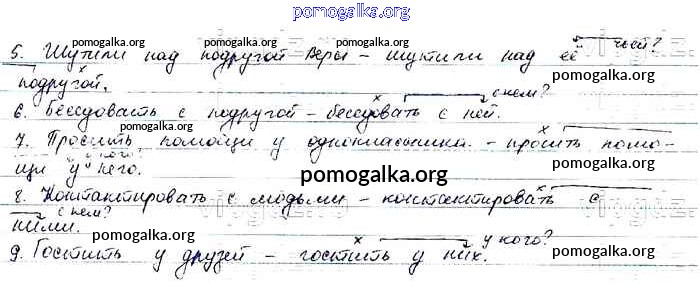 pomogalka.org
5. Шутили над подругой Веры – шутили над её чьей?
подругой.
6. Беседовать с подругой – беседовать с ней. с кем?
7. Просить помощи у одноклассника. – просить помо-
щи у него. у кого?
8. Контактировать с людьми – контактировать с
ними. с кем?
9. Гостить у друзей – гостить у них. у кого?
pomogalka.org
pomogalka.org
pomogalka.org
pomogalka.org
pomogalka.org
pomogalka.org
pomogalka.org
pomogalka.org
pomogalka.org
pomogalka.org
pomogalka.org